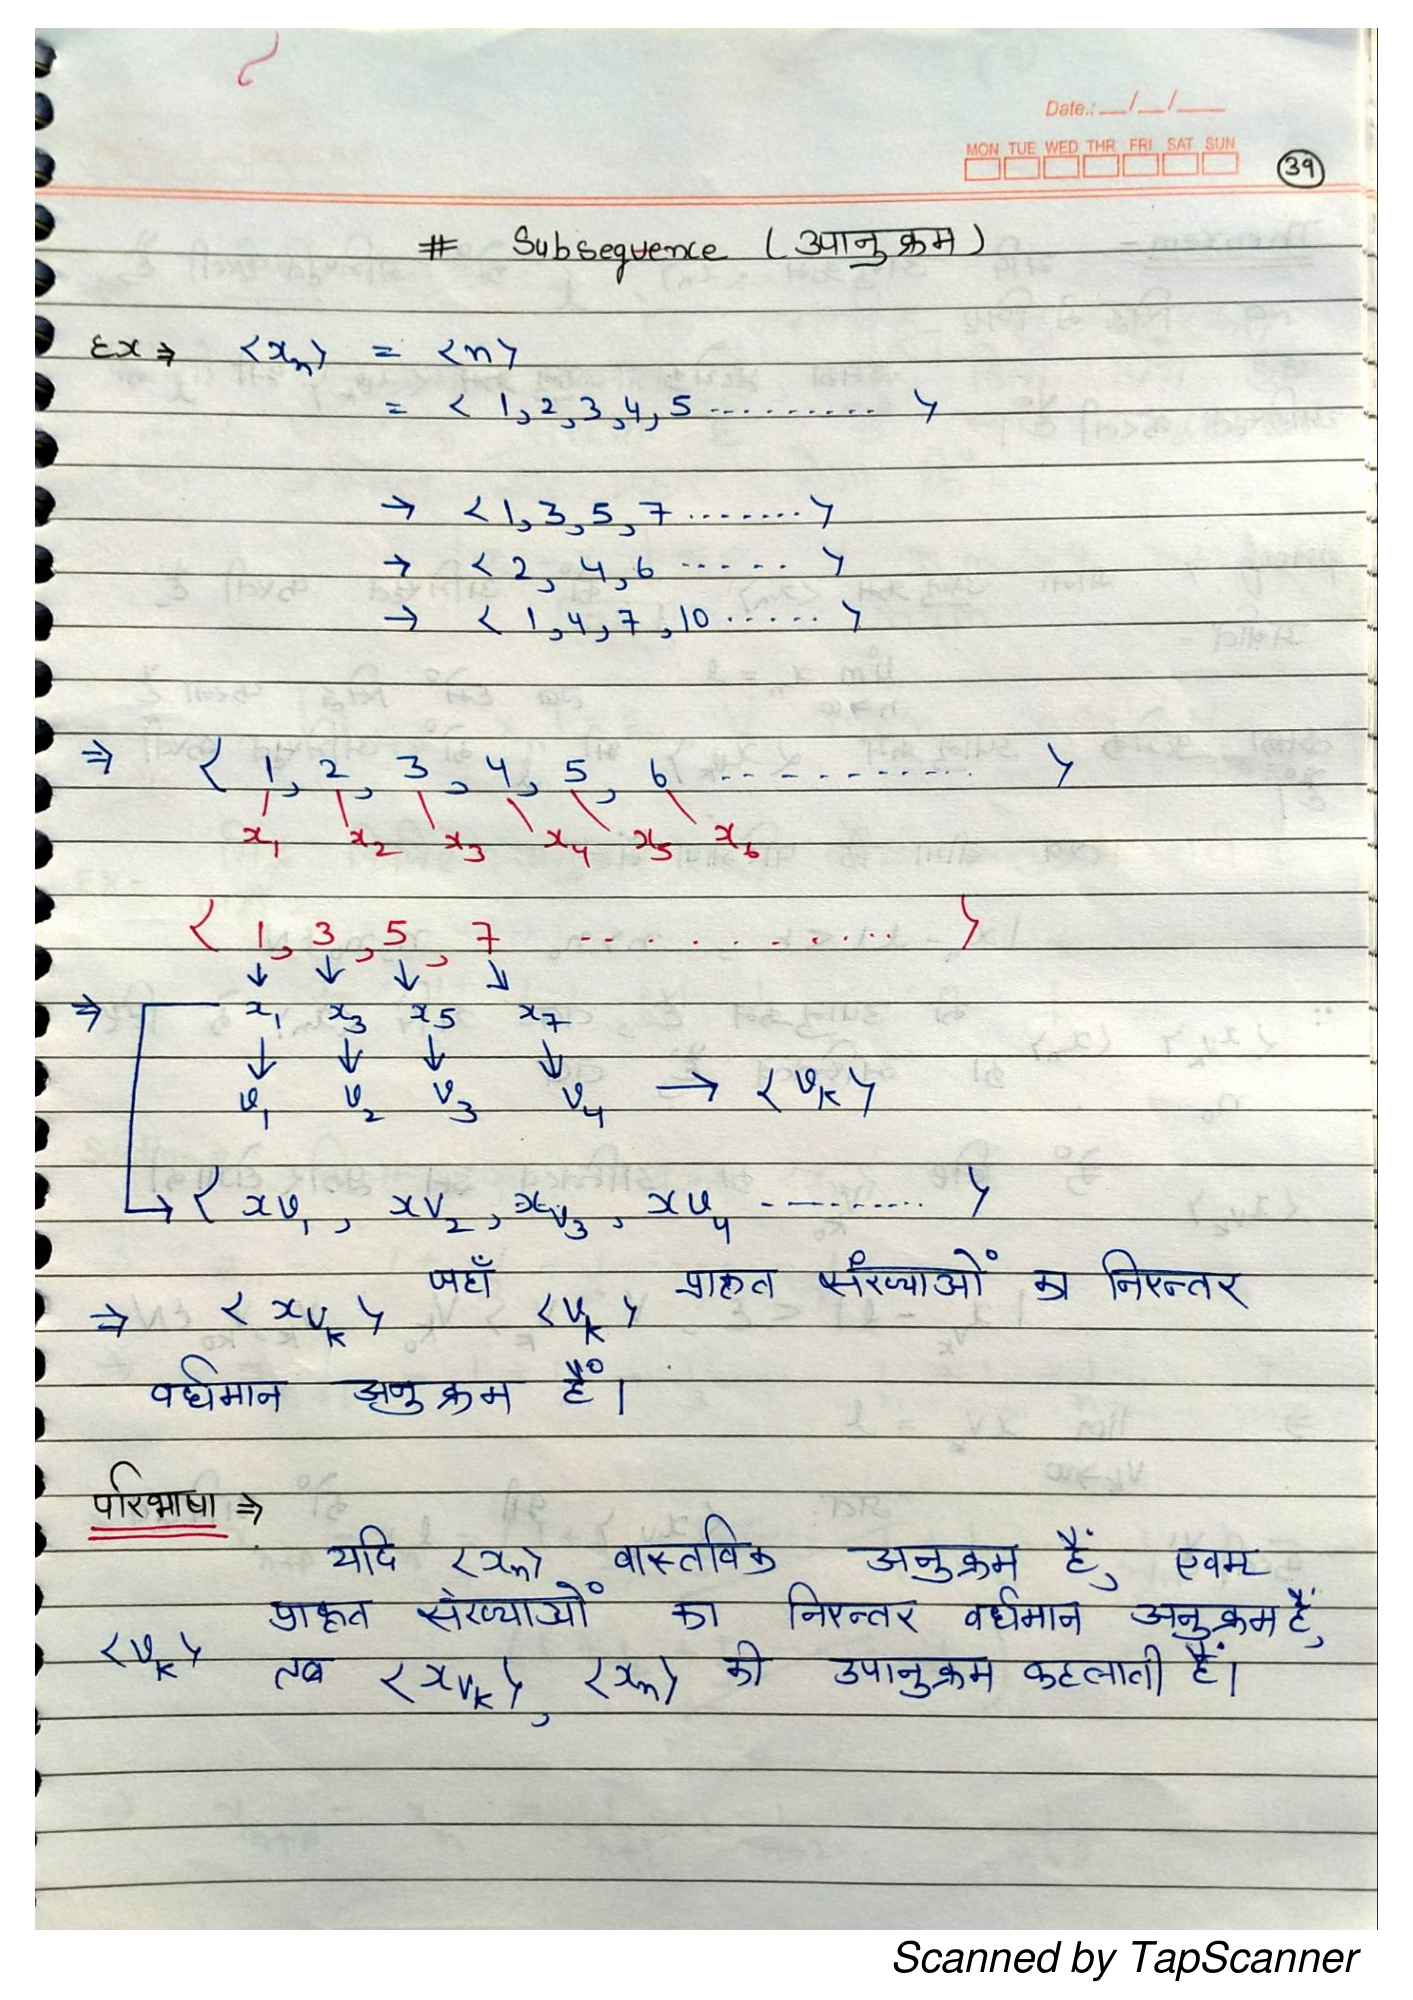 Date.: __/__/___
MON TUE WED THR FRI SAT SUN
39
# Subsequence (उपानुक्रम)
Ex ⇒ <xₙ> = <n>
= < 1, 2, 3, 4, 5 .......... >
→ < 1, 3, 5, 7 ....... >
→ < 2, 4, 6 ..... >
→ < 1, 4, 7, 10 ..... >
⇒ < 1, 2, 3, 4, 5, 6 ............ >
x₁ x₂ x₃ x₄ x₅ x₆
< 1, 3, 5, 7 ............ >
↓ ↓ ↓ ↓
⇒ x₁ x₃ x₅ x₇
↓ ↓ ↓ ↓
v₁ v₂ v₃ v₄ → <vₖ>
→ < xv₁, xv₂, xv₃, xv₄ ......... >
⇒ < xvₖ > जहाँ <vₖ> प्राकृत संख्याओं का निरन्तर
वर्धमान अनुक्रम हैं।
परिभाषा ⇒
यदि <xₙ> वास्तविक अनुक्रम हैं, एवम
<vₖ> प्राकृत संख्याओं का निरन्तर वर्धमान अनुक्रम हैं,
तब <xvₖ>, <xₙ> की उपानुक्रम कहलाती हैं।
Scanned by TapScanner